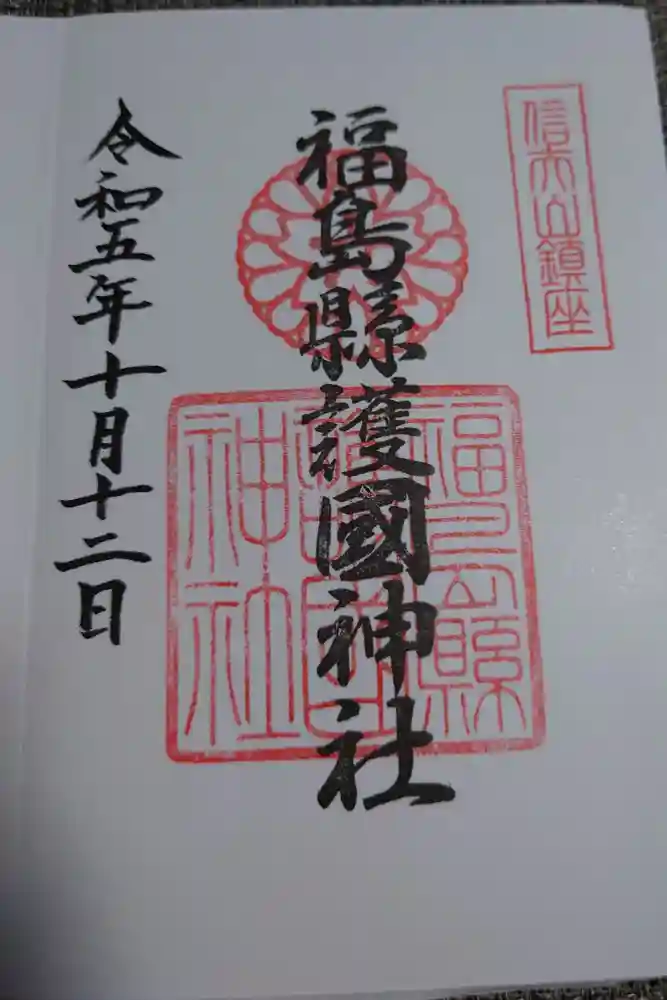 信夫山鎮座
福島縣護國神社
福島縣
護國
神社
令和五年十月十二日